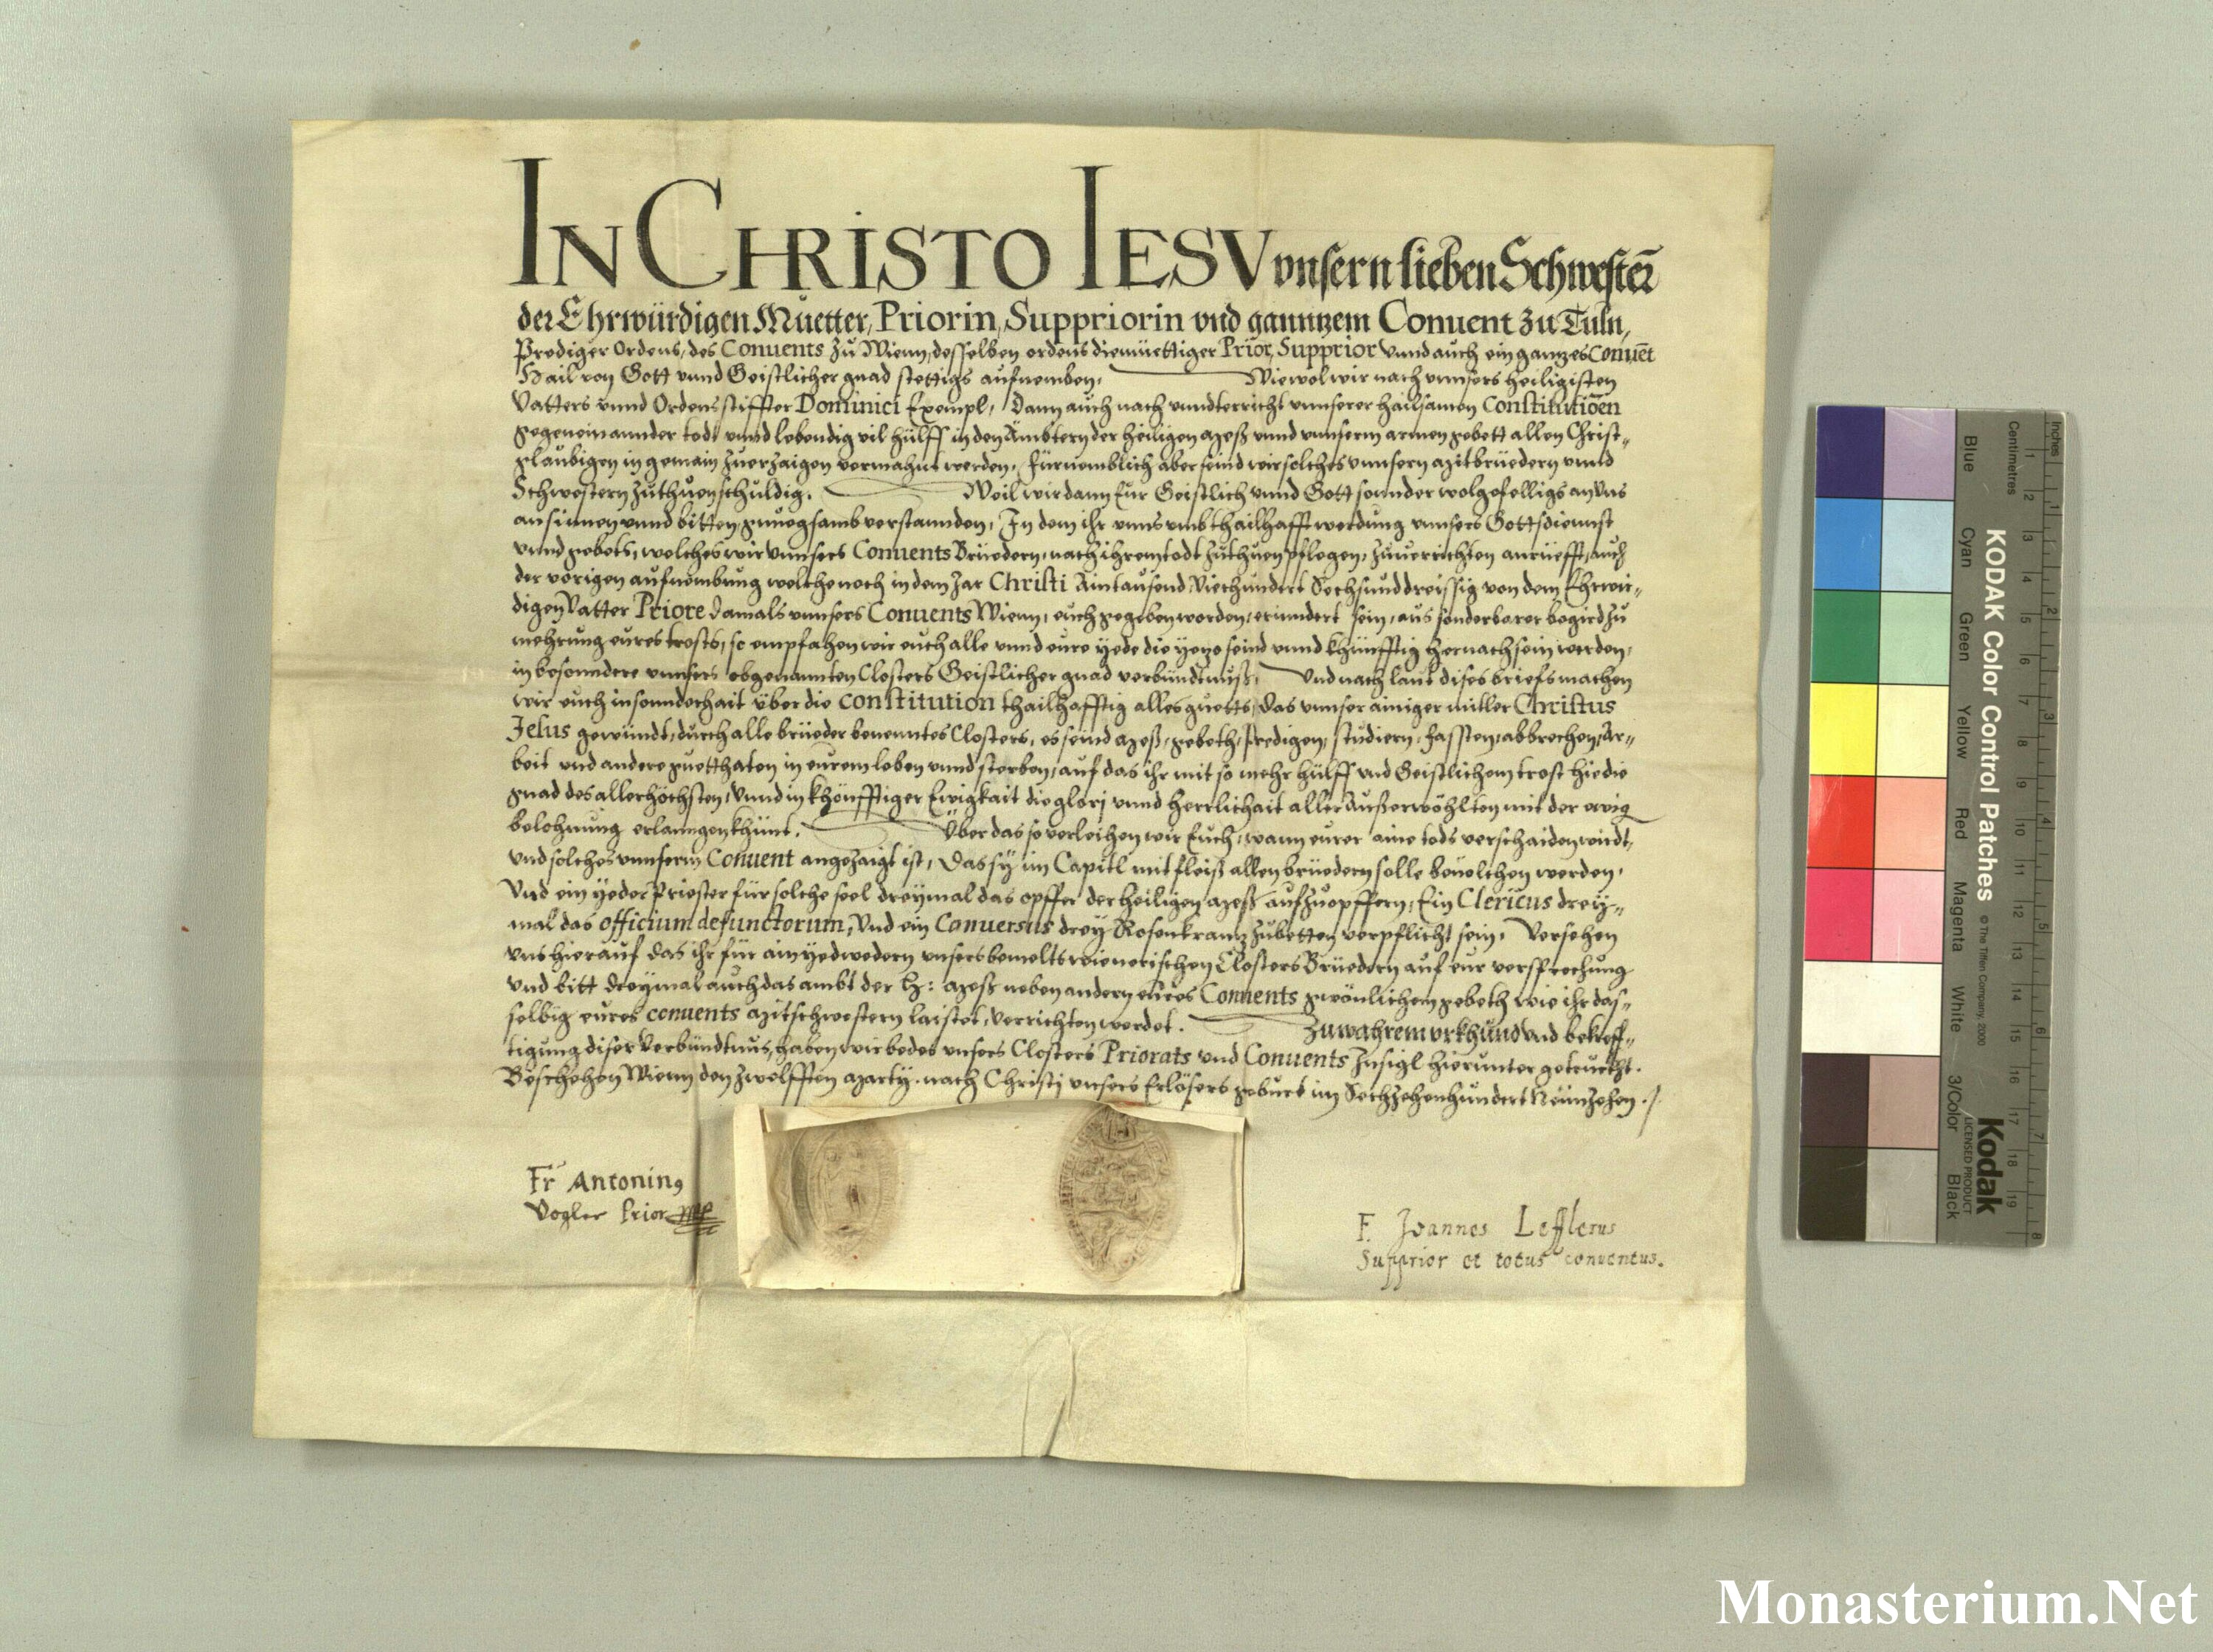 IN CHRISTO IESV vnsern lieben Schwestern̄
der Ehrwürdigen Muetter, Priorin, Suppriorin vnd gannzem Conuent zu Tuln,
Prediger Ordens, des Conuents zu Wienn, desselben ordens diemüettiger Prior, Supprior vnnd auch ein ganzes Conuēt
Hail von Gott vnnd Geistlicher gnad stettigs aufnemben. Wiewol wir nach vnnsers heiligisten
Vatters vnnd Ordens stiffter Dominici Exempl, dann auch nach vnndterricht vnnserer hailsamen Constitutiōen
gegeneinannder todt vnnd lebendig vil hülff in den Ämbtern der heiligen Meß vnnd vnnserm armen gebett allen Christ„
glaubigen in gemain zuerzaigen vermahnt werden, fürnemblich aber seind wir solches vnnsern Mitbrüedern vnnd
Schwestern zuthuen schuldig. Weil wir dann Eur Geistlich vnnd Gott sonnder wolgefelligs an Vns
ansinnen vnnd bitten gnuegsamb verstannden, In dem ihr vnns vmb thailhafft werdung vnnsers Gottsdiennst
vnnd gebets, welches wir Vnnsers Conuents Brüedern, nach ihrem todt zuthuen pflegen, zuuerrichten anrüefft, auch
der vorigen aufnembung welche noch in dem Jar Christi Aintausend Vierhundert Sechsunddreissig von dem Ehrwir„
digen Vatter Priore damals vnnsers Conuents Wienn, euch gegeben worden, erinndert sein, aus sonderbarer begird zu
mehrung eures trosts, so empfahen wir euch alle vnnd eure yede die yezo seind vnnd khünfftig hernach sein werden,
in besonndere vnnsers obgenannten Closters Geistlicher gnad verbündtnuß, Vnd nach laut dises briefs machen
wir euch insonnderhait über die constitution thailhafftig alles guetts, das vnnser ainiger mitler Christus
Jesus gewündt, durch alle brüeder benenntes Closters, es seind Meß, gebeth, Predigen, studiern, fassten, abbrechen, Ar„
beit vnd andere guetthaten in eurem leben vnnd sterben, auf das ihr mit so mehr hülff vnd Geistlichem trost hie die
gnad des allerhöchsten, Vnnd in khönfftiger Ewigkait die glorj vnnd herrlichait aller Außerwöhlten mit der ewig
belohnung erlanngen khünt. Über das so verleihen wir Euch, wann eurer aine tods verschaiden wirdt,
vnd solches vnnserm Conuent angezaigt ist, das sy im Capitl mit fleiß allen brüedern solle beuolchen werden,
Vnd ein yeder Priester für solche seel dreymal das opffer der heiligen Meß aufzuopffern, Ein Clericus drey„
mal das officium defunctorum, Vnd ein Conuersus drey Rosenkranz zubetten verpflicht sein, Versehen
vns hierauf das ihr für ain yedwedern vnsers bemelts wienerischen Closters Brüedern auf eur versprechung
vnd bitt dreymal auch das ambt der H: Meß neben andern eures Conuents gwönlichem gebeth wie ihr das„
selbig eures conuents Mitschwestern laistet, verrichten werdet. Zu wahrem vrkhund vnd bekreff„
tigung diser Verbündtnus, haben wir bedes vnsers Closters Priorats vnd Conuents Insigl hierunter getruckht.
Beschehen Wienn den zwelfften Marty nach Christi vnsers Erlösers geburt im Sechzehenhundert Neünzehen ./.
Fr Antoninꝯ
Vogler Prior mp
F. Joannes Lefflerus
Supprior et totus conventus.
KODAK Color Control Patches
© The Tiffen Company, 2000
Kodak
LICENSED PRODUCT
Inches
Centimetres
Blue
Cyan
Green
Yellow
Red
Magenta
White
3/Color
Black
Monasterium.Net